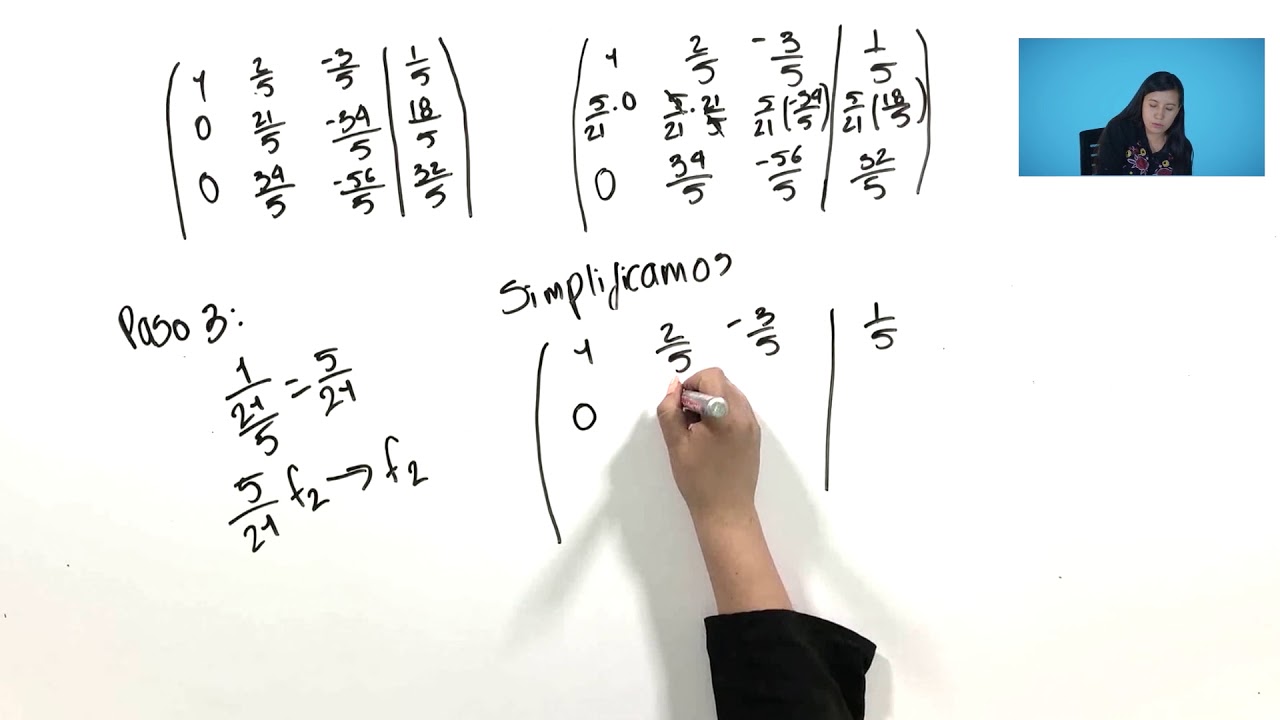 1 2/5 -3/5 | 1/5
0 21/5 -34/5 | 18/5
0 34/5 -56/5 | 32/5
1 2/5 -3/5 | 1/5
5/21·0 5/21·21/5 5/21(-34/5) | 5/21(18/5)
0 34/5 -56/5 | 32/5
Paso 3:
1/(21/5) = 5/21
5/21 f₂ → f₂
Simplificamos
1 2/5 -3/5 | 1/5
0